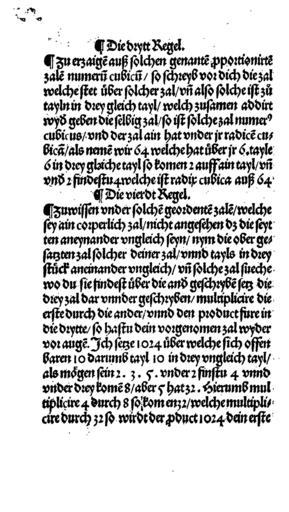 ¶ Die drytt Regel.
¶ Zu erzaigẽ auß solchen genantẽ proportionirtẽ
zalẽ numerũ cubicũ / so schreyb vor dich die zal
welche stet über solcher zal / vñ also solche ist zů
tayln in drey gleich tayl / welch zusamen addirt
wyd geben die selbig zal / so ist solche zal numerꝰ
cubicus / vnd der zal ain hat vnder jr radicẽ cu-
bicã / als nemẽ wir 64 welche hat über jr 6. tayle
6 in drey gleiche tayl so komen 2 auff ain tayl / vñ
vnd 2 findestu 4 welche ist radix cubica auß 64
¶ Die vierdt Regel.
¶ Zuwissen vnder solchẽ geordentẽ zalẽ / welche
sey ain corperlich zal / nicht angesehen dz die seyt
ten aneynander vngleich seyn / nym die ober ge-
satzten zal solcher deiner zal / vnnd tayls in drey
stück aneinander vngleich / vñ solche zal sueche
wo du sie findest über die and geschrybẽ setz die
drey zal dar vnnder geschryben / multiplicire die
erste durch die ander / vnnd den product füre in
die drytte / so hastu dein vorgenomen zal wyder
vor augẽ. Ich setze 1024 über welche sich offen
baren 10 darumb tayl 10 in drey vngleich tayl /
als mögen sein 2. 3. 5. vnder 2 finstu 4 vnnd
vnder drey komẽ 8 / aber 5 hat 32. Hierumb mul
tiplicire 4 durch 8 so komen 32 / welche multipli-
cire durch 32 so wirdt der product 1024 dein erste